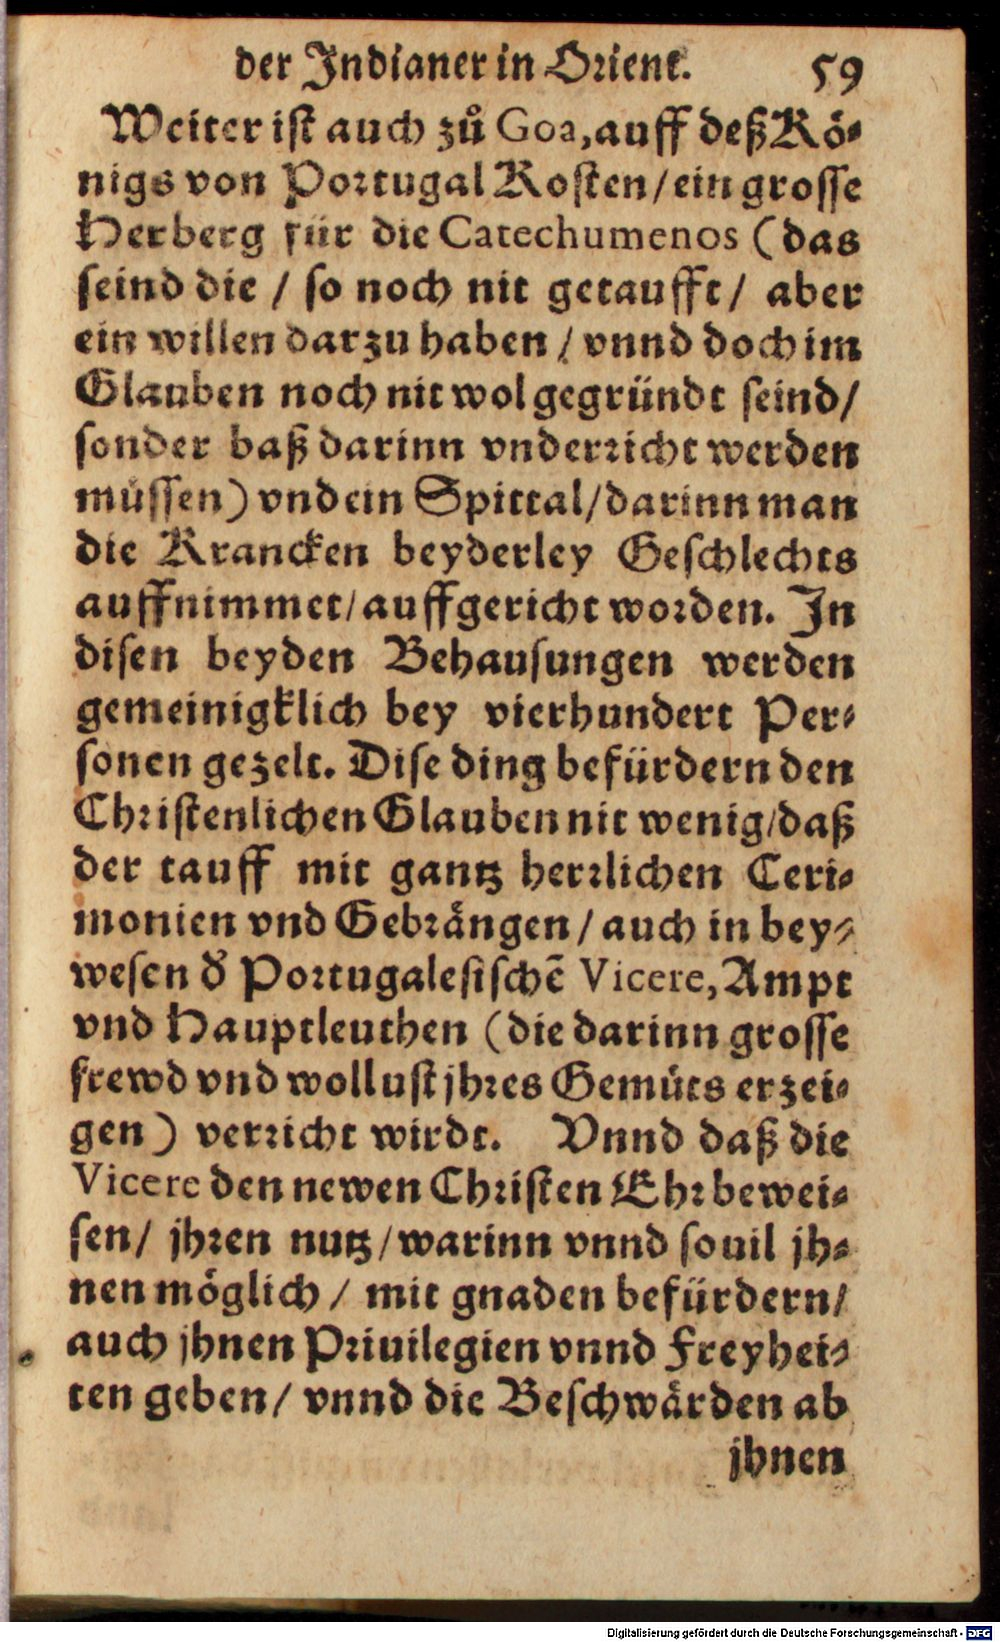 der Indianer in Orient. 59
Weiter ist auch zů Goa, auff deß Kö-
nigs von Portugal Kosten / ein grosse
Herberg für die Catechumenos (das
seind die / so noch nit getaufft / aber
ein willen darzu haben / vnnd doch im
Glauben noch nit wol gegründt seind /
sonder baß darinn vnderricht werden
müssen) vnd ein Spittal / darinn man
die Krancken beyderley Geschlechts
auffnimmet / auffgericht worden. In
disen beyden Behausungen werden
gemeinigklich bey vierhundert Per-
sonen gezelt. Dise ding befürdern den
Christenlichen Glauben nit wenig / daß
der tauff mit gantz herrlichen Ceri-
monien vnd Gebrängen / auch in bey-
wesen d' Portugalesischē Vicere, Ampt
vnd Hauptleuthen (die darinn grosse
frewd vnd wollust jhres Gemüts erzei-
gen) verricht wirdt. Vnnd daß die
Vicere den newen Christen Ehr bewei-
sen / jhren nutz / warinn vnnd souil jh-
nen möglich / mit gnaden befürdern /
auch jhnen Priuilegien vnnd Freyhei-
ten geben / vnnd die Beschwärden ab
jhnen
Digitalisierung gefördert durch die Deutsche Forschungsgemeinschaft - DFG